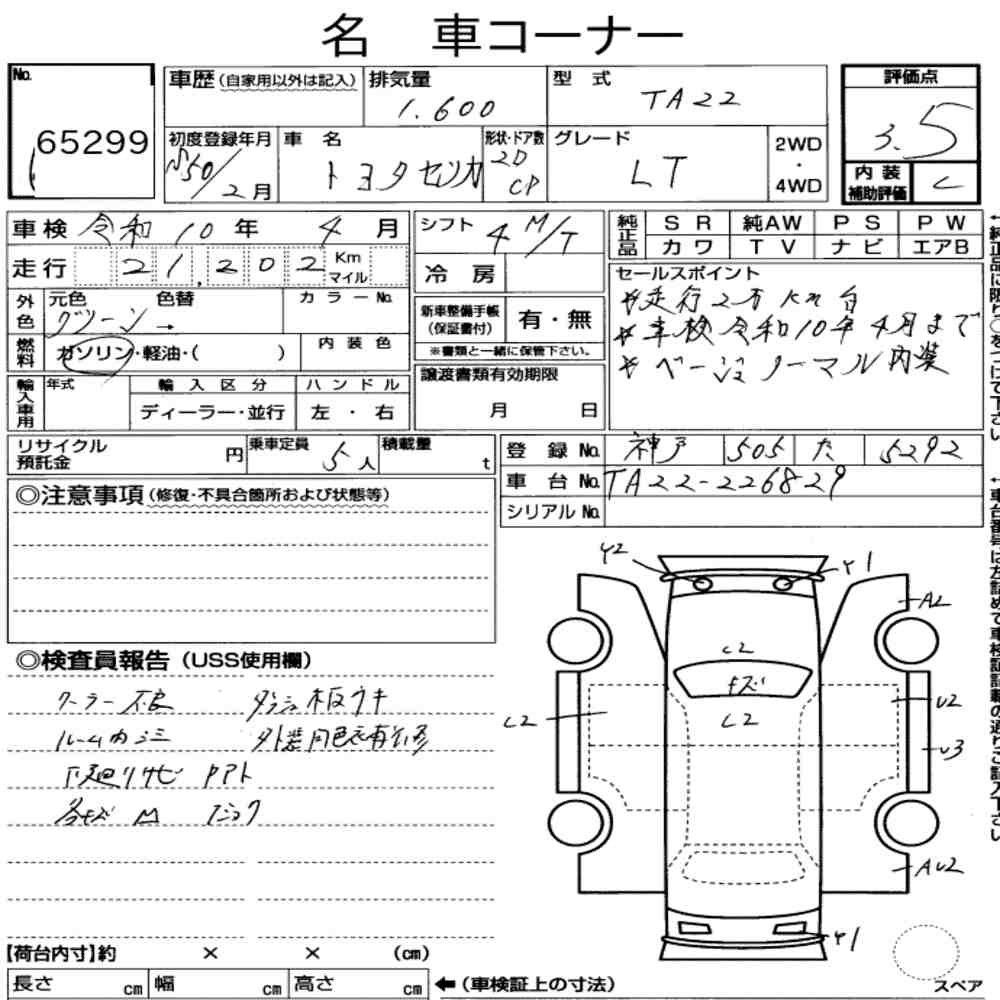 名 車コーナー
No.
65299
車歴(自家用以外は記入)
排気量
1.600
型 式
TA22
評価点
3.5
初度登録年月
S50/2月
車 名
トヨタセリカ
形状・ドア数
2D
CP
グレード
LT
2WD
・
4WD
内 装
補助評価
C
車検 令和10年 4月
走行 21,202 Km
マイル
シフト
4 M/T
冷 房
純正品
SR 純AW PS PW
カワ TV ナビ エアB
セールスポイント
*走行2万Km台
*車検令和10年4月まで
*ベージュノーマル内装
外色
元色 色替
グリーン→
カラーNo.
燃料
ガソリン・軽油・( )
内装色
新車整備手帳
(保証書付)
有・無
※書類と一緒に保管下さい。
輸入車用
年式
輸入区分
ディーラー・並行
ハンドル
左 ・ 右
譲渡書類有効期限
月 日
リサイクル
預託金
円
乗車定員
5人
積載量
t
登 録 No. 神戸 505 た 5292
車 台 No. TA22-226829
シリアル No.
←純正品に限り○をつけて下さい
←車台番号は左詰めで車検証記載の通りご記入下さい
◎注意事項(修復・不具合箇所および状態等)
◎検査員報告(USS使用欄)
クーラー不良 ダッシュ板ウキ
ルーム内シミ
下廻りサビ
各キズ M
Y2
Y1
A2
C2
キズ
C2
C2
U2
U3
AU2
Y1
【荷台内寸】約 × × (cm)
長さ cm 幅 cm 高さ cm
←(車検証上の寸法)
スペア